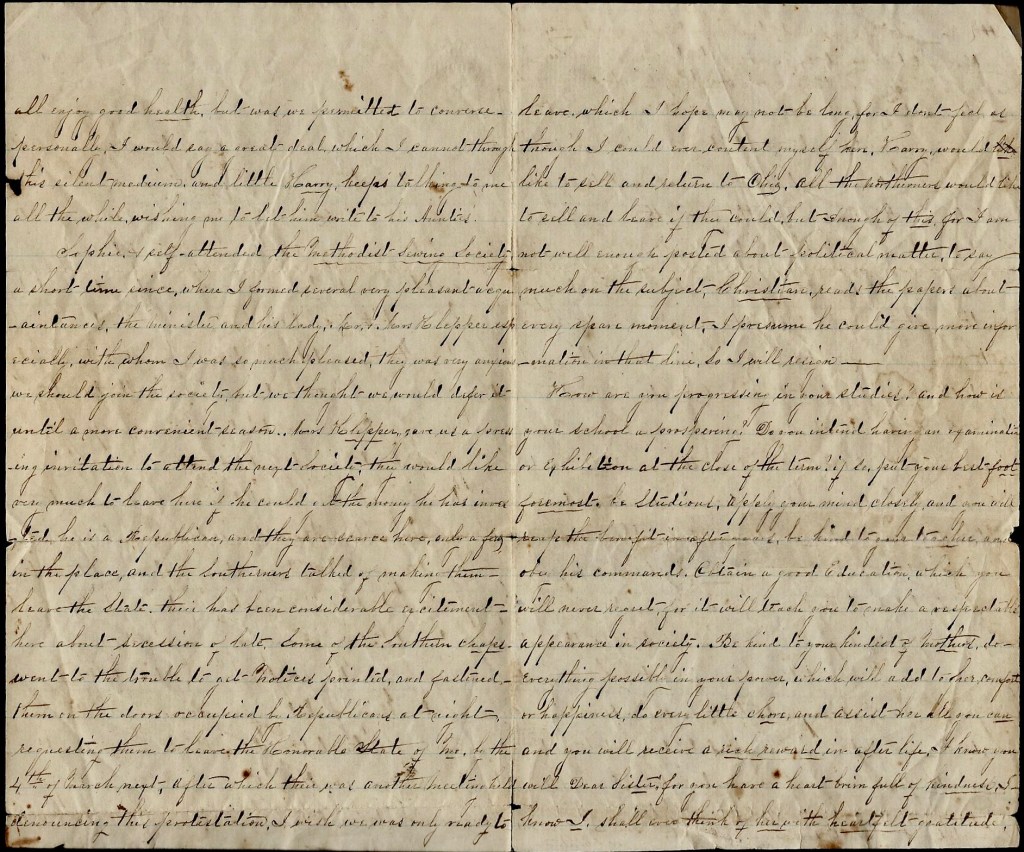 all enjoy good health, but was we permitted to converse
personally, I would say a great deal, which I cannot through
this silent medium, and little Harry, keeps talking to me
all the while, wishing me to let him write to his Aunties.
Sophie, & self attended the Methodist Sewing Society,
a short time since, where I formed several very pleasant acqu
-aintances, the minister and his lady, Mr. & Mrs Klepper esp
ecially, with whom I was so much pleased, they was very anxious
we should join the society, but we thought we would defer it
until a more convenient season. Mrs Klepper, gave us a press
ing invitation to attend the next Society, they would like
very much to leave here if he could get the money he has inves
-ted, he is a Republican, and they are scarce here, only a few,
in the place, and the Southerners talked of making them
leave the State. their has been considerable excitement
here about secession of late, Some of the Southern chaps
went to the trouble to get Notices printed, and fastened
them on the doors occupied by Republicans at night,
requesting them to leave the Honorable State of Mo, by the
4th of March next, after which their was another meeting held
denouncing this protestation, I wish we was only ready to
leave, which I hope may not be long, for I dont feel as
through I could ever content myself here. Harry, would
like to sell and return to Ohio, all the northerners would like
to sell and leave if they could, but enough of this, for I am
not well enough posted about political matter, to say
much on the subject, Christian, reads the papers about
every spare moment, I presume he could give, more infor
-mation in that line, So I will resign
How are you progressing in your studies? and how is
your school a prospering? Do you intend having an examination
or Exhibition at the close of the term? if so, put your best foot
foremost, be Studious, apply your mind closely and you will
reap the benefit in after years, be kind to your teacher, and
obey his commands. Obtain a good Education, which you
will never regret, for it will teach you to make a respectable
appearance in society. Be kind to your kindest of Mothers, do
Everything possible in your power, which will add to her, comfort
or happiness, do every little chore, and assist her all you can
and you will receive a rich reward in after life, I know you
will Dear Sister, for you have a heart brim full of kindness, I
know I, shall ever think of her, with heartfelt gratitude,